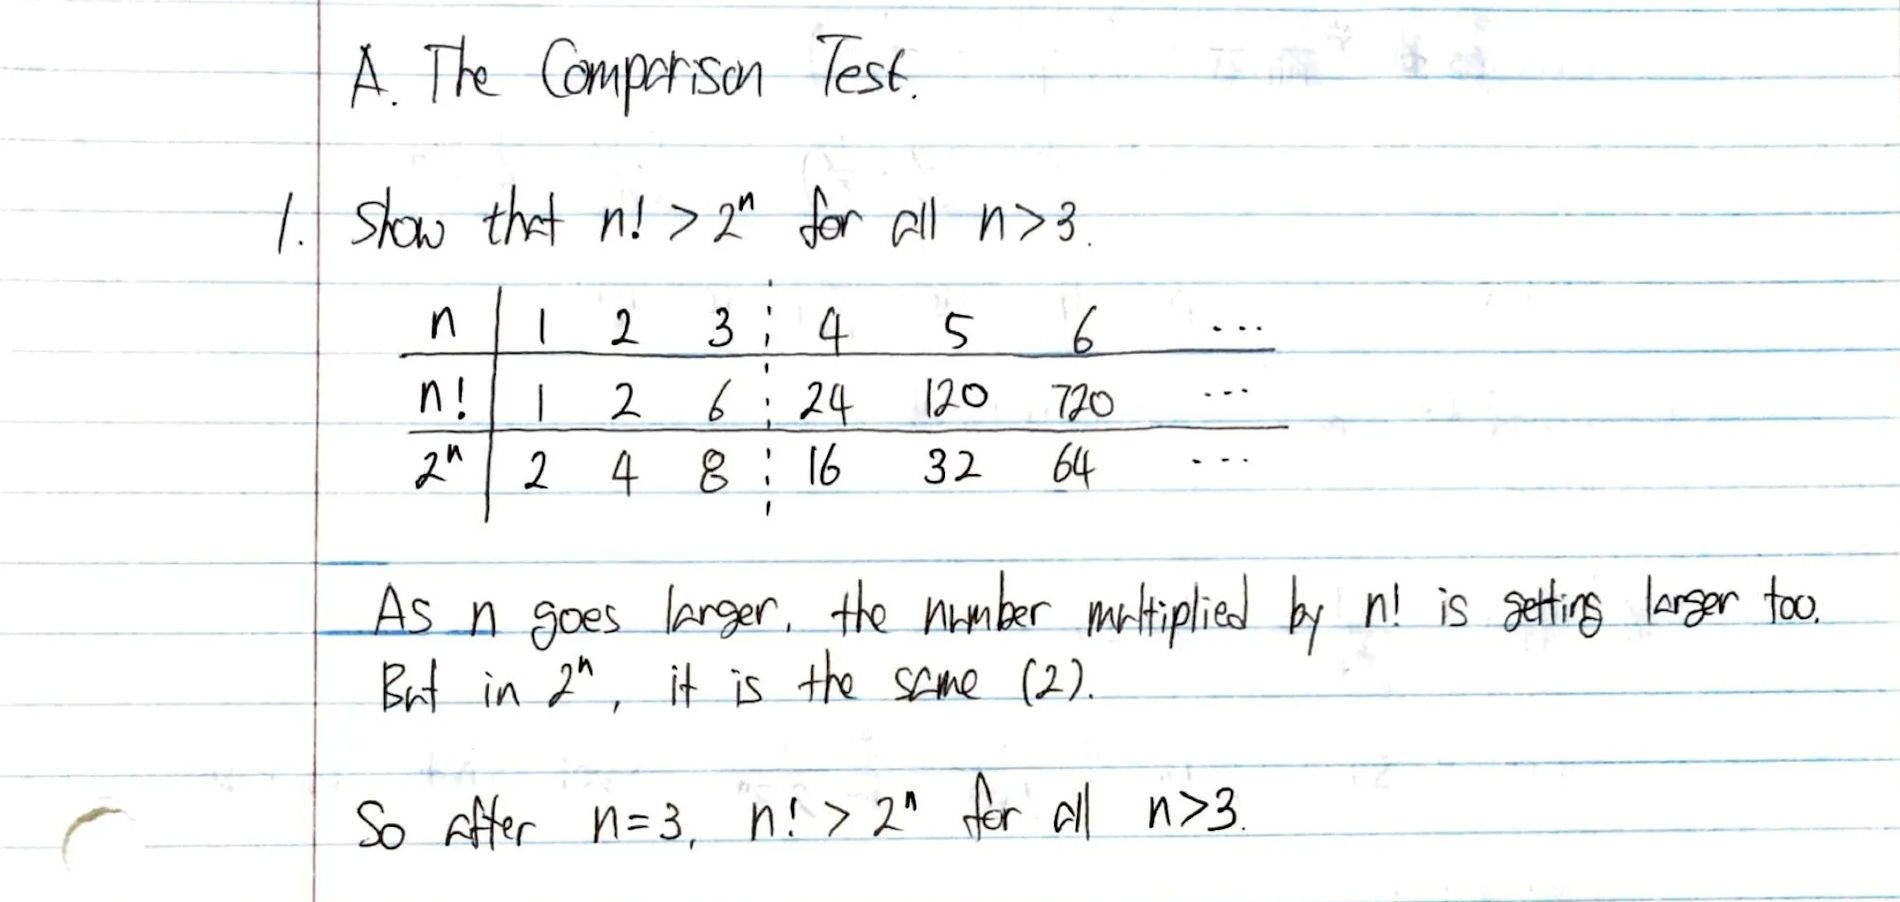 A. The Comparison Test.
1. Show that n! > 2ⁿ for all n>3.
n 1 2 3 4 5 6 ...
n! 1 2 6 24 120 720 ...
2ⁿ 2 4 8 16 32 64 ...
As n goes larger, the number multiplied by n! is getting larger too.
But in 2ⁿ, it is the same (2).
So after n=3, n! > 2ⁿ for all n>3.